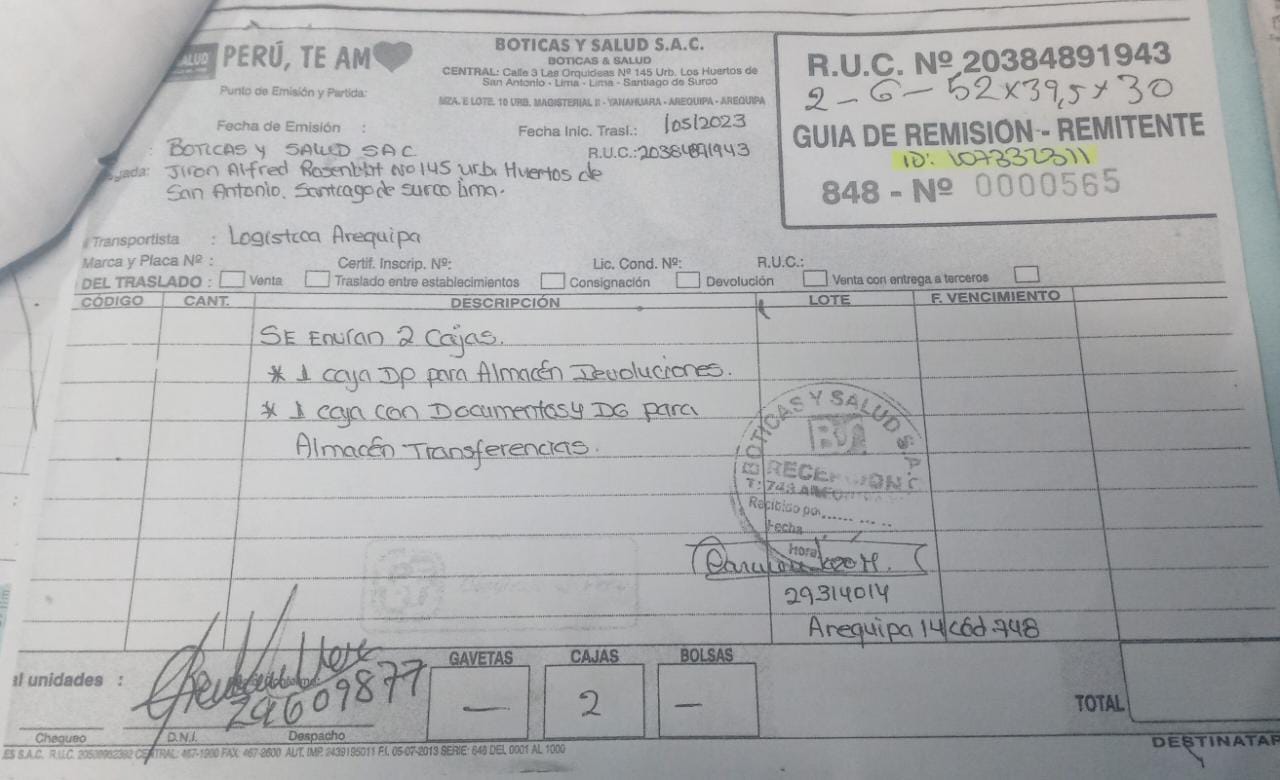 SALUD PERÚ, TE AM
BOTICAS Y SALUD S.A.C.
BOTICAS & SALUD
CENTRAL: Calle 3 Las Orquideas Nº 145 Urb. Los Huertos de
San Antonio - Lima - Lima - Santiago de Surco
MZA. E LOTE. 10 URB. MAGISTERIAL II - YANAHUARA - AREQUIPA - AREQUIPA
Punto de Emisión y Partida:
R.U.C. Nº 20384891943
2-6-52x39,5x30
GUIA DE REMISION - REMITENTE
ID: 107332311
848 - Nº 0000565
Fecha de Emisión :
Fecha Inic. Trasl.: /05/2023
: BOTICAS Y SALUD SAC
R.U.C.: 20384891943
Jiron Alfred Rosenblat No 145 urb. Huertos de
San Antonio. Santiago de Surco Lima.
Transportista : Logistica Arequipa
Marca y Placa Nº :
Certif. Inscrip. Nº:
Lic. Cond. Nº:
R.U.C.:
DEL TRASLADO : Venta Traslado entre establecimientos Consignación Devolución Venta con entrega a terceros
CÓDIGO CANT. DESCRIPCIÓN LOTE F. VENCIMIENTO
SE Envian 2 Cajas.
* 1 caja DP para Almacén Devoluciones.
* 1 caja con Documentos y DG para
Almacén Transferencias.
BOTICAS Y SALUD S.A.C.
Recibido por
Fecha
Hora
29314014
Arequipa 14 Cód. 748
l unidades :
29609877
GAVETAS CAJAS BOLSAS
— 2 —
TOTAL
Chequeo D.N.I. Despacho
DESTINATAR